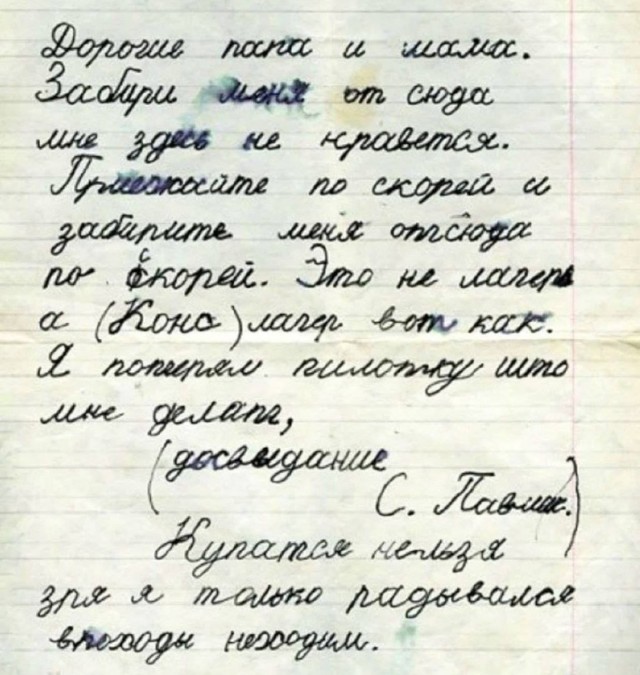 Дорогие папа и мама.
Забири меня от сюда
мне здесь не нраветса.
Приежжайте по скорей и
забирите меня отсюда
по скорей. Это не лагерь
а (Конс) лагер вот как.
Я потерял пилотку што
мне делать,
(досвидание
С. Павлик.)
Купатся нельзя
зря я только радывался
впоходы неходим.